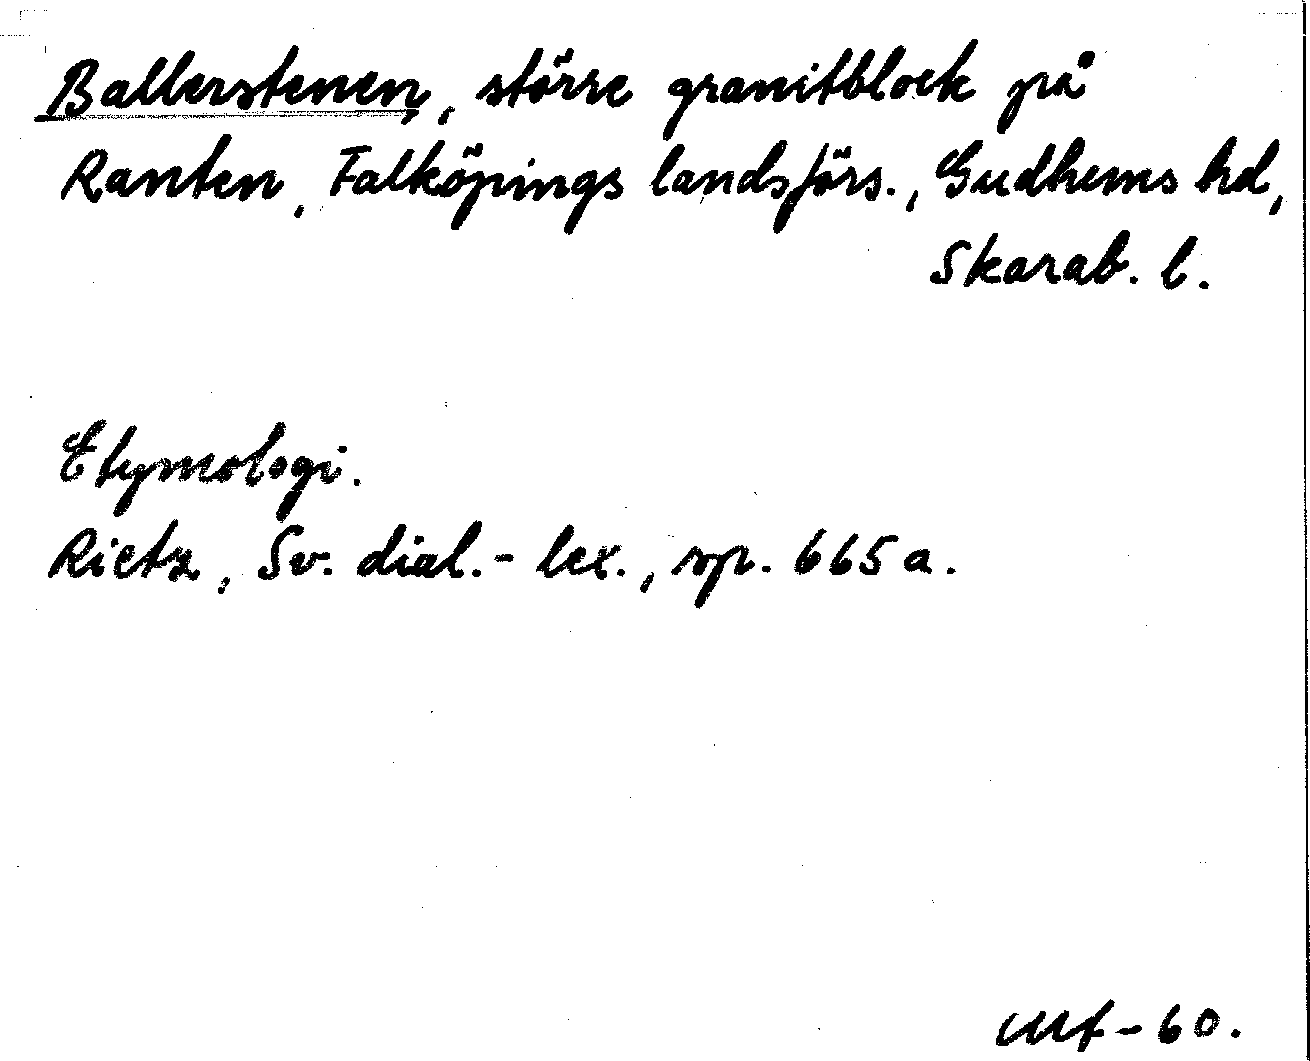 Ballerstenen, större granitblock på
Ranten, Falköpings landsförs., Gudhems hd,
Skarab. l.
Etymologi.
Rietz, Sv. dial.-lex., sp. 665 a.
-60.